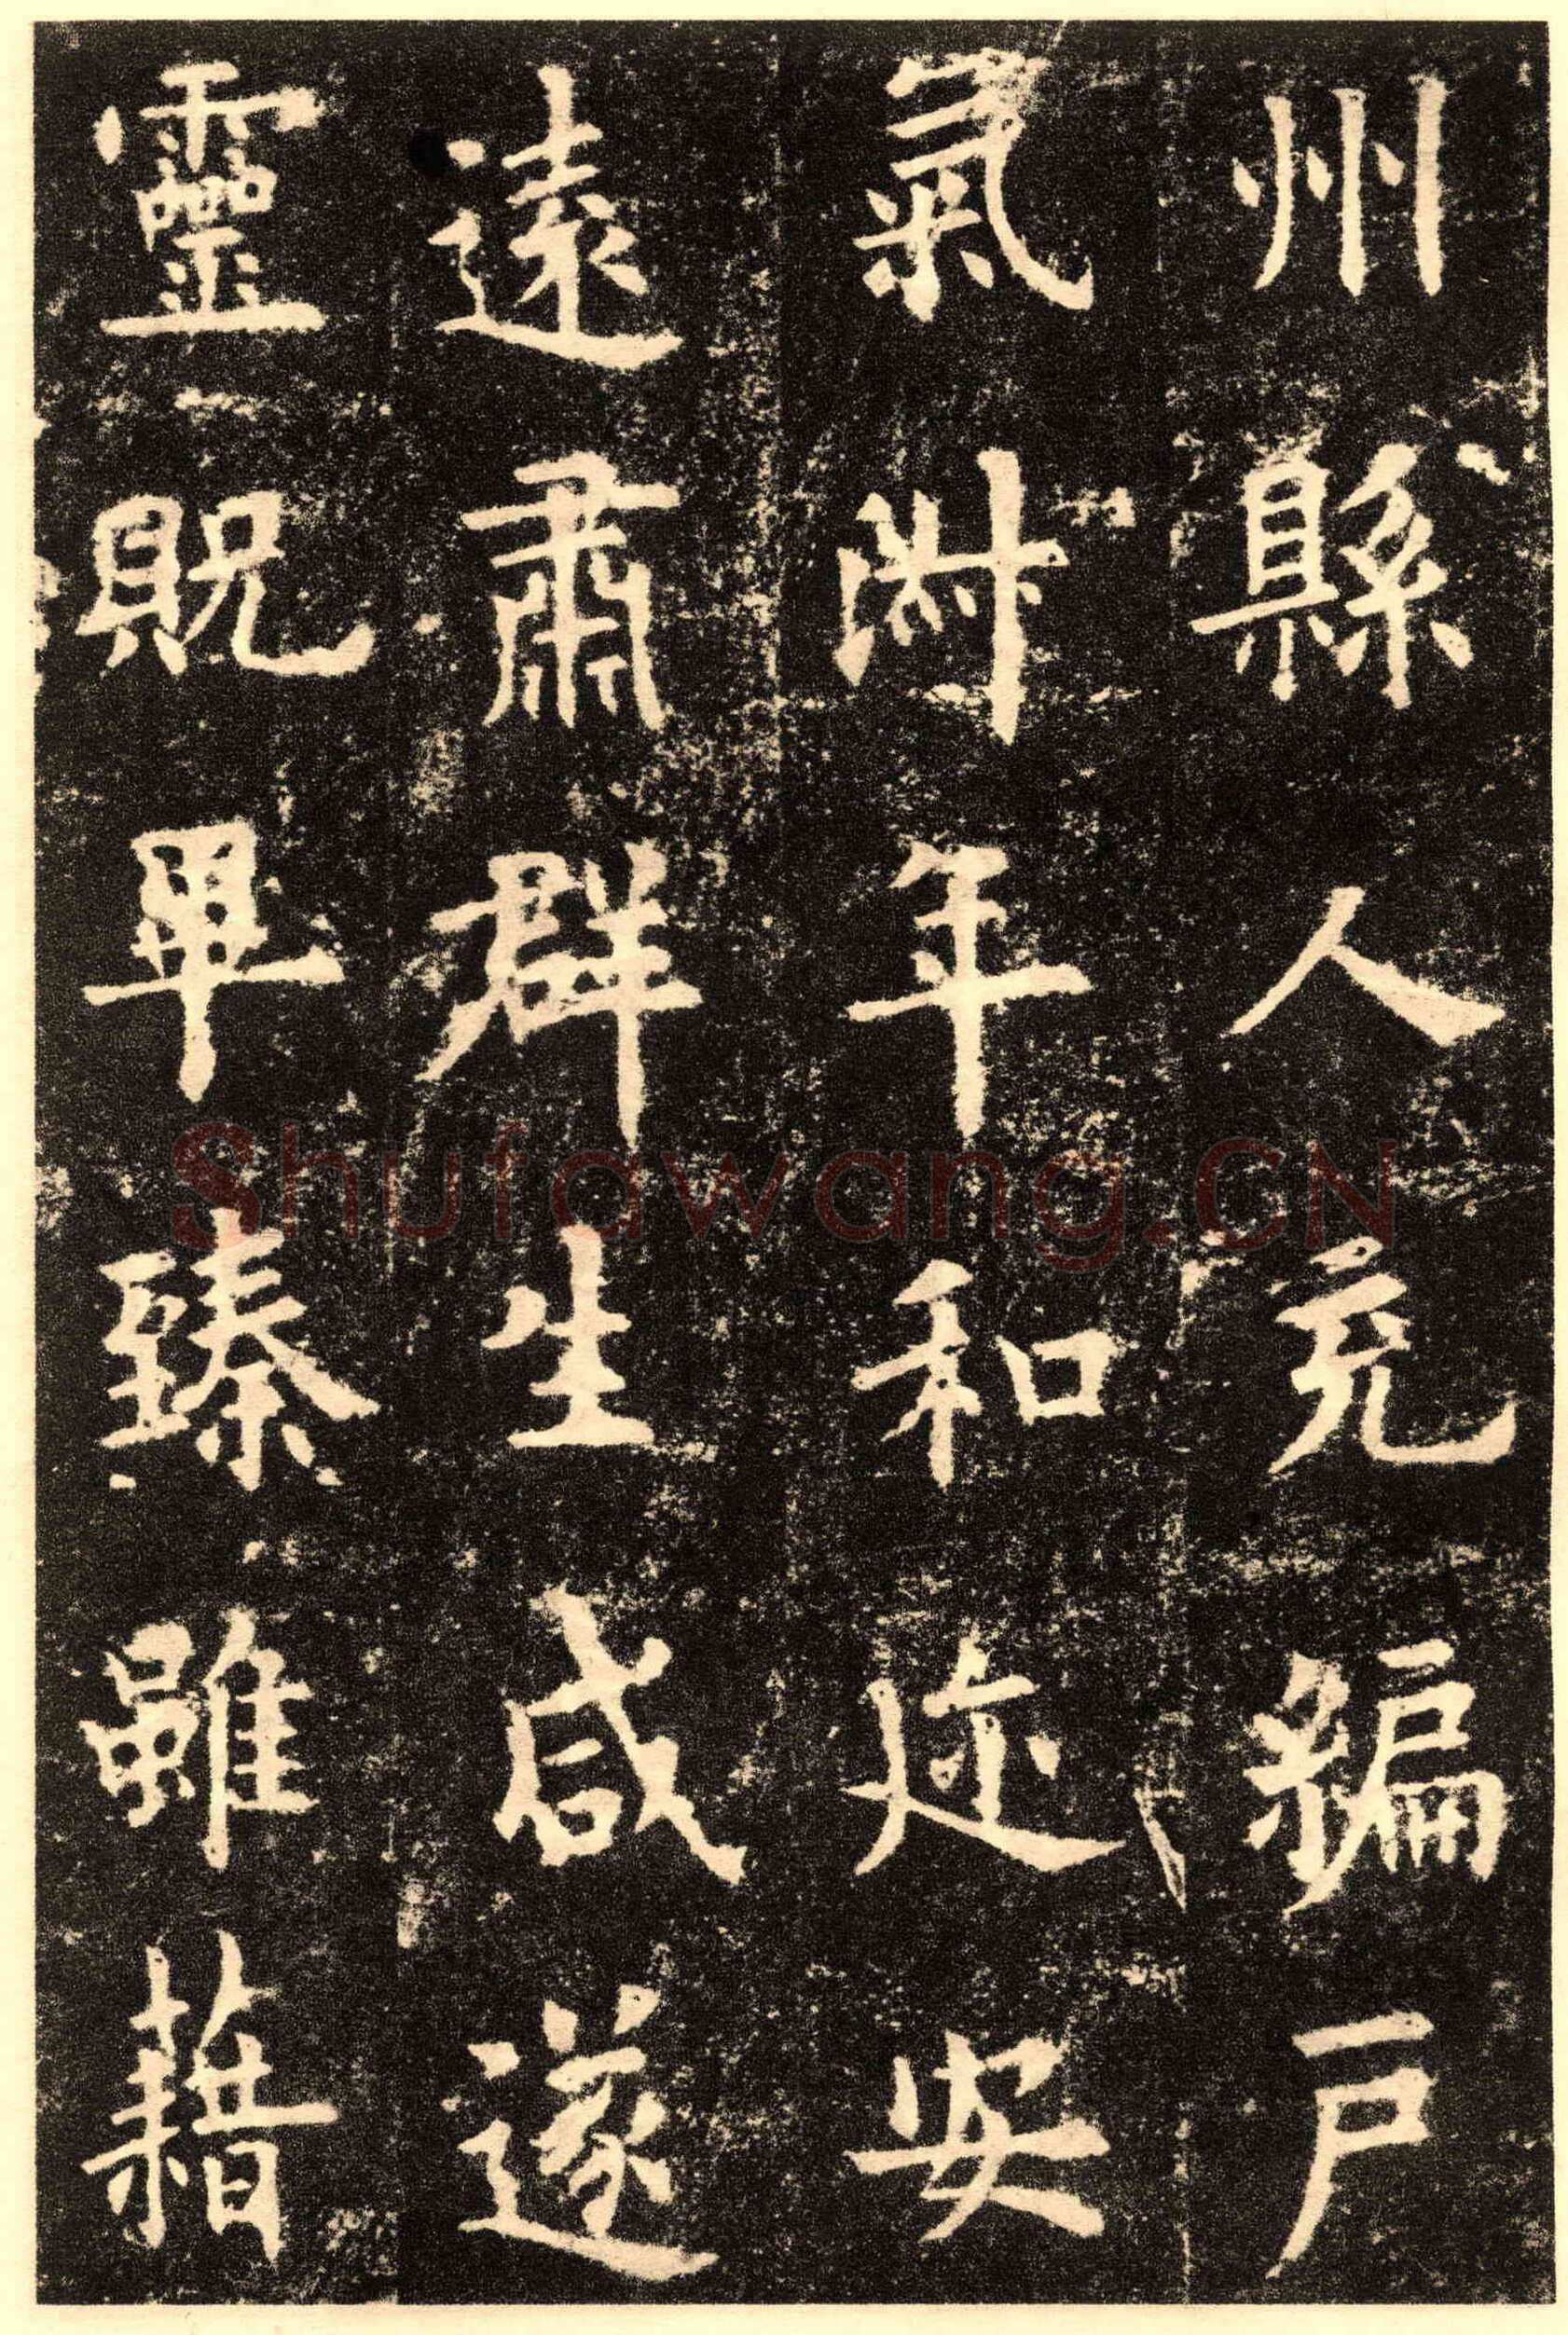 州縣人充編戶
氣淑年和迩安
遠肅群生咸遂
靈貺畢臻雖藉
Shufawang.CN